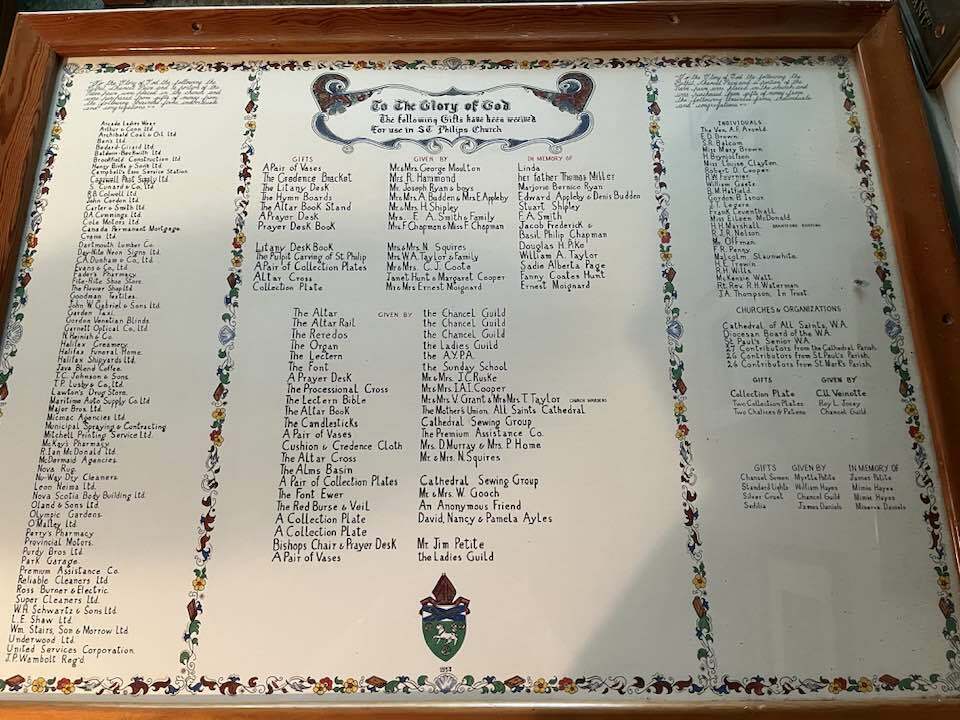 To The Glory of God
The following Gifts have been received
For use in St. Philips Church
For the Glory of God the following the
were purchased from gifts of money from
the following
Arcade Ladies Wear
Arthur & Conn Ltd.
Archibald Coal & Oil Ltd
Ben's Ltd.
Bedard-Girard Ltd.
Baldwin-Beckwith Ltd
Brookfield Construction Ltd
Henry Birks & Sons Ltd.
Campbell's Esso Service Station
Cogswell Post Supply Ltd
S. Cunard & Co., Ltd
B.B. Colwell Ltd.
John Gordon Ltd.
Carter & Smith Ltd
D.A. Cummings Ltd.
Cole Motors Ltd.
Canada Permanent Mortgage
Crane Ltd
Dartmouth Lumber Co.
Day-Nite Neon Signs Ltd.
C.A. Dunham & Co., Ltd.
Evans & Co., Ltd.
Fader's Pharmacy
Fite-Rite Shoe Store.
The Flower Shop Ltd
Goodman Textiles.
John W. Gabriel & Sons Ltd.
Garden Taxi.
Gordon Venetian Blinds.
Garnett Optical Co., Ltd
N. Heinish & Co.
Halifax Creamery.
Halifax Funeral Home.
Halifax Shipyards Ltd.
Java Blend Coffee.
T.C. Johnson & Sons.
T.P. Lusby & Co., Ltd.
Lawton's Drug Store.
Maritime Auto Supply Co. Ltd
Major Bros. Ltd.
Micmac Agencies Ltd.
Municipal Spraying & Contracting
Mitchell Printing Service Ltd.
McKay's Pharmacy
R. Ian McDonald Ltd.
McDermaid Agencies.
Nova Rug.
Nu-Way Dry Cleaners.
Leon Neima Ltd.
Nova Scotia Body Building Ltd.
Oland & Sons Ltd
Olympic Gardens.
O'Malley Ltd.
Parry's Pharmacy
Provincial Motors.
Purdy Bros Ltd.
Park Garage.
Premium Assistance Co.
Reliable Cleaners Ltd
Ross Burner & Electric.
Super Cleaners Ltd.
W.H. Schwartz & Sons Ltd.
L.E. Shaw Ltd.
Wm. Stairs, Son & Morrow Ltd.
Underwood Ltd.
United Services Corporation.
J.P. Wambolt Reg'd.
GIFTS GIVEN BY IN MEMORY OF
A Pair of Vases Mr & Mrs. George Moulton Linda
The Credence Bracket Mrs R. Hammond her father Thomas Miller
The Litany Desk Mr. Joseph Ryan & boys Marjorie Bernice Ryan
The Hymn Boards Mr & Mrs A. Budden & Mrs E. Appleby Edward Appleby & Denis Budden
The Altar Book Stand Mr & Mrs. H. Shipley Stuart Shipley
A Prayer Desk Mrs. E. A. Smith & Family F. A. Smith
Prayer Desk Book Mrs. F Chapman & Miss F Chapman Jacob Frederick &
Basil Philip Chapman
Litany Desk Book Mr & Mrs. N. Squires Douglas H. Pike
The Pulpit Carving of St. Philip Mrs. W.A. Taylor & Family William A. Taylor
A Pair of Collection Plates Mr & Mrs. C. J. Coote Sadie Alberta Page
Altar Cross Janet Hunt & Margaret Cooper Fanny Coates Hunt
Collection Plate Mr & Mrs Ernest Moignard Ernest Moignard
The Altar GIVEN BY the Chancel Guild
The Altar Rail the Chancel Guild
The Reredos the Chancel Guild
The Organ the Ladies Guild
The Lectern the A.Y.P.A.
The Font the Sunday School
A Prayer Desk Mr & Mrs. J.C. Ruske
The Processional Cross Mr & Mrs. I.A.I. Cooper
The Lectern Bible Mr & Mrs. V. Grant & Mr & Mrs. T. Taylor CHURCH WARDENS
The Altar Book The Mothers Union, All Saints Cathedral
The Candlesticks Cathedral Sewing Group
A Pair of Vases The Premium Assistance Co.
Cushion & Credence Cloth Mrs. D. Murray & Mrs. P. Home
The Altar Cross Mr. & Mrs. N. Squires
The Alms Basin
A Pair of Collection Plates Cathedral Sewing Group
The Font Ewer Mr. & Mrs. W. Gooch
The Red Burse & Veil An Anonymous Friend
A Collection Plate David, Nancy & Pamela Ayles
A Collection Plate
Bishops Chair & Prayer Desk Mr. Jim Petite
A Pair of Vases the Ladies Guild
1958
For the Glory of God the following the
were purchased from gifts of money from
INDIVIDUALS
The Ven. A.F. Arnold.
E.D. Brown.
S.R. Balcom
Miss Mary Brown.
H. Brynjolfson
Miss Louise Clayton.
Robert D. Cooper
H.W. Fournier
William Gaetz
B.M. Hatfield.
Gordon B. Isnor
J.T. Legere
Frank Leventhall.
Miss Eileen McDonald
H.H. Marshall
R.J.R. Nelson.
Mr. Offman.
F.R. Penny
Malcolm Slaunwhite.
H.L. Trewin
R.H. Wills
McKenzie Watt
Rt. Rev. R.H. Waterman
J.A. Thompson, In Trust
CHURCHES & ORGANIZATIONS
Cathedral of All Saints, W.A.
Diocesan Board of the W.A.
St. Paul's Senior W.A.
27 Contributors from the Cathedral Parish.
26 Contributors from St. Paul's Parish.
26 Contributors from St. Mark's Parish.
GIFTS GIVEN BY
Collection Plate C.U. Veinotte
Two Collection Plates Roy L. Josey
Two Chalices & Patens Chancel Guild
GIFTS GIVEN BY IN MEMORY OF
Chancel Screen Myrtle Petite James Petite
Standard Lights William Hayes Mimie Hayes
Silver Cruet Chancel Guild Mimie Hayes
Sedilia James Daniels Minerva Daniels